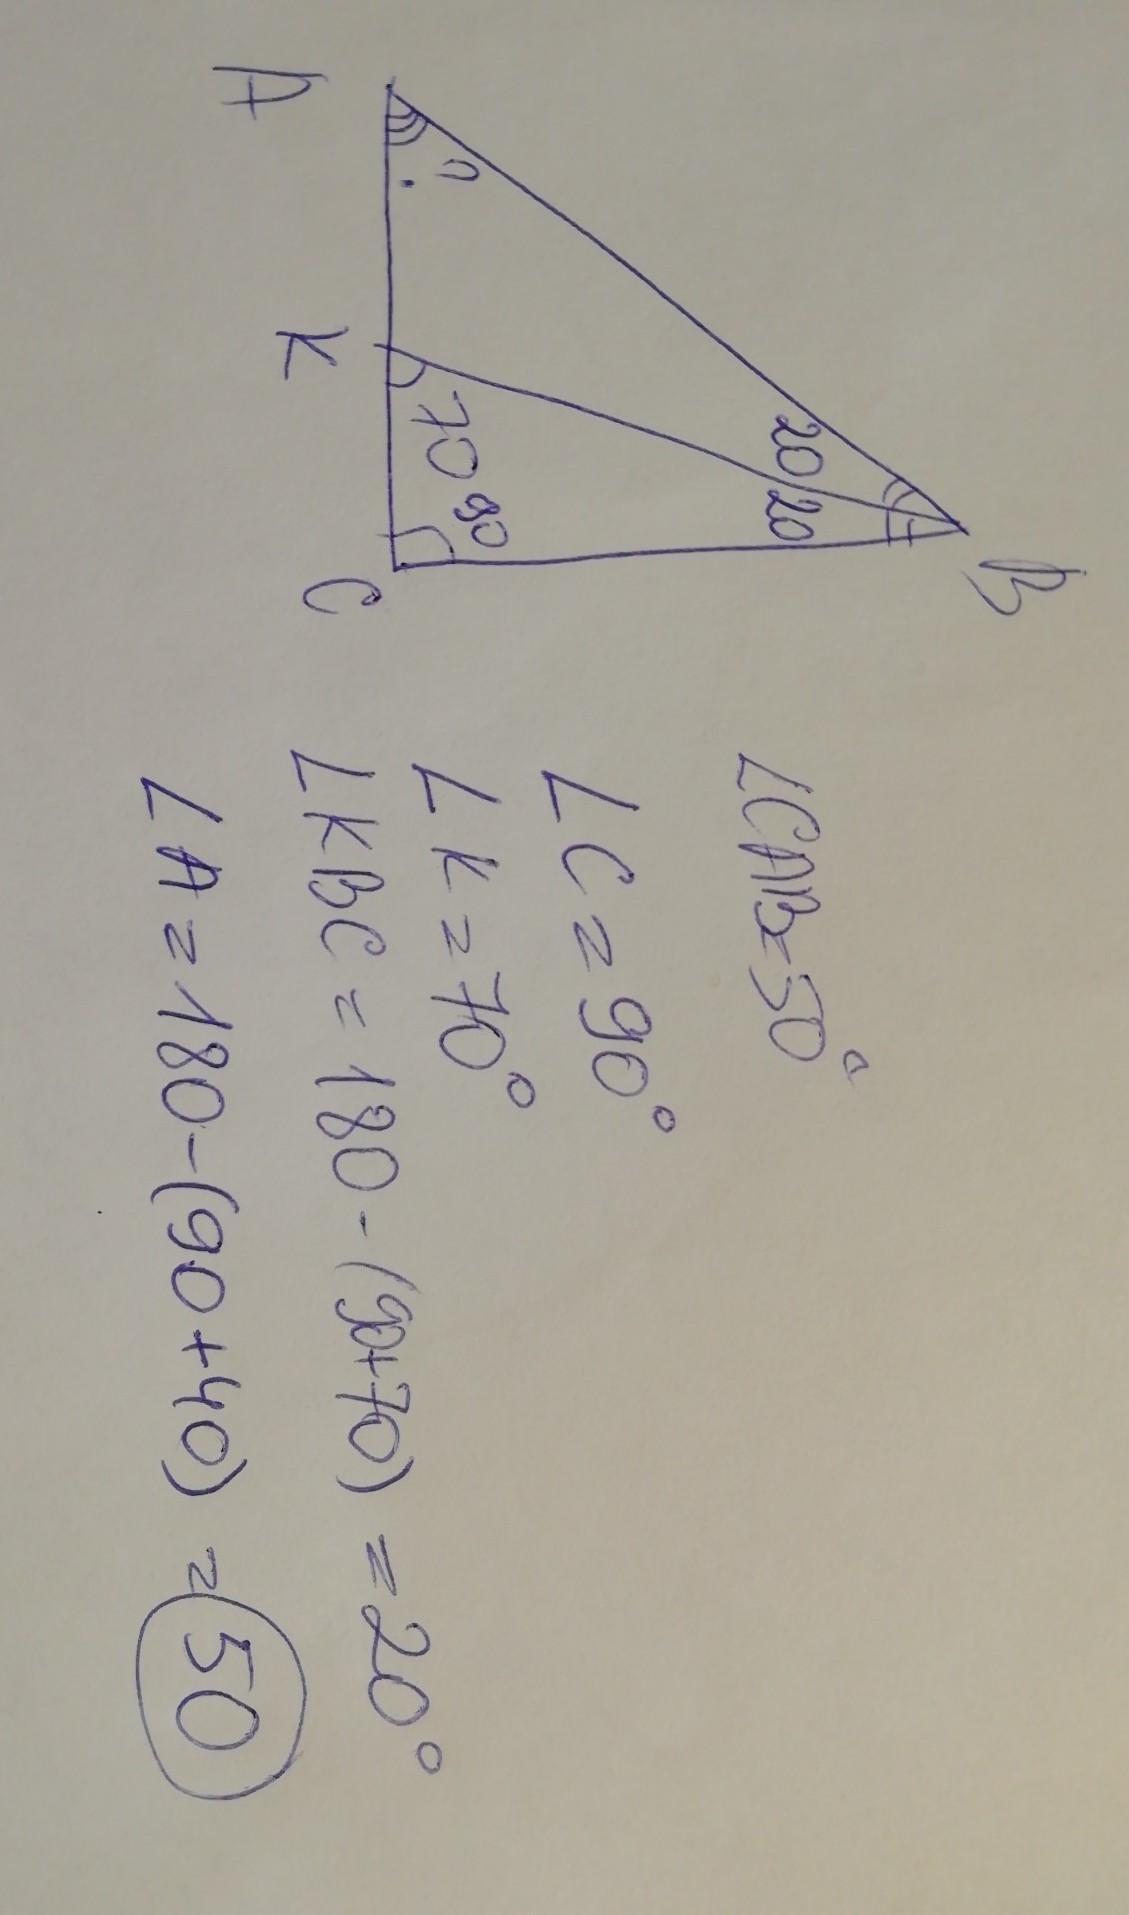 B
20 20
?
70 90
A K C
∠CAB=50°
∠C=90°
∠K=70°
∠KBC=180-(90+70)=20°
∠A=180-(90+40)=50